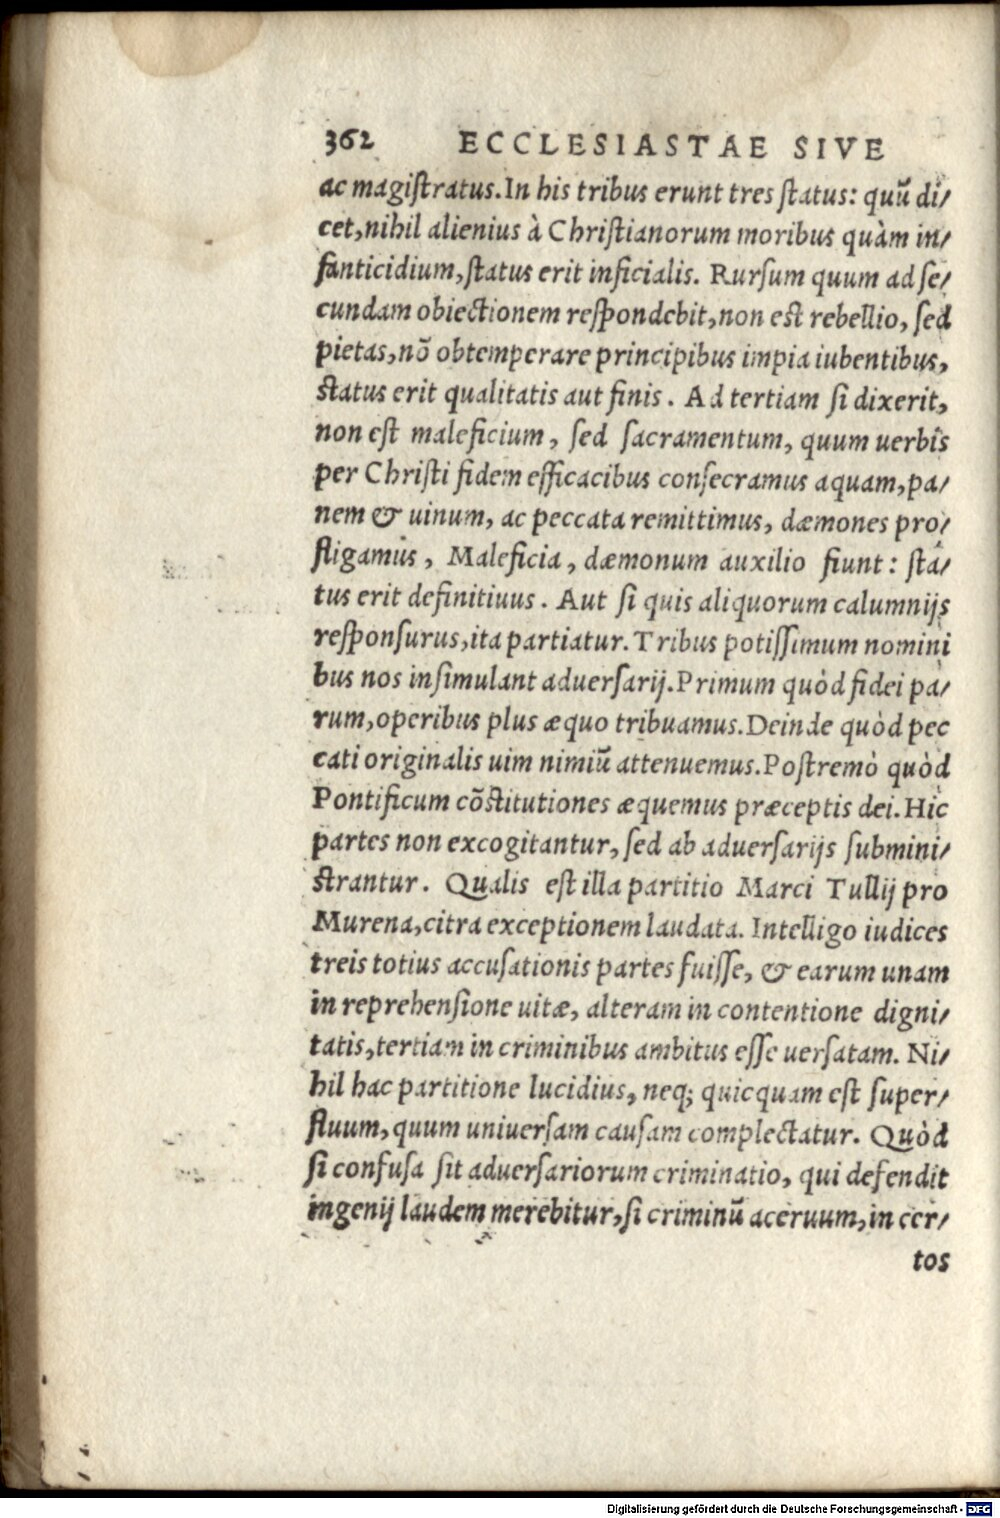 362 ECCLESIASTAE SIVE
ac magiſtratus. In his tribus erunt tres ſtatus: quū di/
cet, nihil alienius à Chriſtianorum moribus quàm in/
fanticidium, ſtatus erit inficialis. Rurſum quum ad ſe/
cundam obiectionem reſpondebit, non eſt rebellio, ſed
pietas, nō obtemperare principibus impia iubentibus,
ſtatus erit qualitatis aut finis. Ad tertiam ſi dixerit,
non eſt maleficium, ſed ſacramentum, quum uerbis
per Chriſti fidem efficacibus conſecramus aquam, pa/
nem & uinum, ac peccata remittimus, dæmones pro/
fligamus, Maleficia, dæmonum auxilio fiunt: ſta/
tus erit definitiuus. Aut ſi quis aliquorum calumnijs
reſponſurus, ita partiatur. Tribus potiſſimum nomini
bus nos inſimulant aduerſarij. Primum quòd fidei pa/
rum, operibus plus æquo tribuamus. Deinde quòd pec
cati originalis uim nimiū attenuemus. Poſtremò quòd
Pontificum cōſtitutiones æquemus præceptis dei. Hic
partes non excogitantur, ſed ab aduerſarijs ſubmini/
ſtrantur. Qualis eſt illa partitio Marci Tullij pro
Murena, citra exceptionem laudata. Intelligo iudices
treis totius accuſationis partes fuiſſe, & earum unam
in reprehenſione uitæ, alteram in contentione digni/
tatis, tertiam in criminibus ambitus eſſe uerſatam. Ni/
hil hac partitione lucidius, neq; quicquam eſt ſuper/
fluum, quum uniuerſam cauſam complectatur. Quòd
ſi confuſa ſit aduerſariorum criminatio, qui defendit
ingenij laudem merebitur, ſi criminū aceruum, in cer/
tos
Digitalisierung gefördert durch die Deutsche Forschungsgemeinschaft - DFG